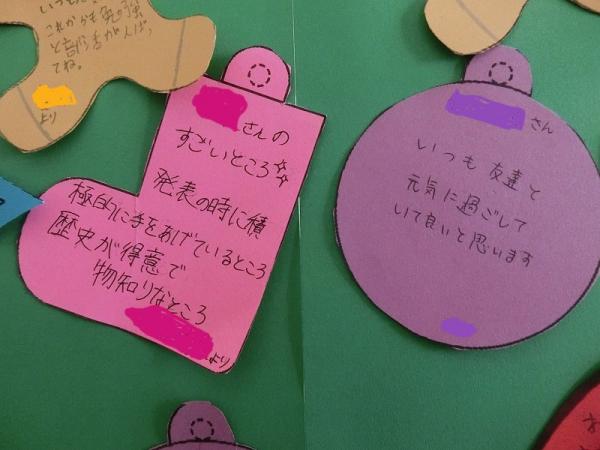 これからも勉強
と部活がんば、
てね。
より
さんの
すごいところ☆☆
発表の時に積
極的に手をあげているところ
歴史が得意で
物知りなところ
より
さん
いつも友達と
元気に過ごして
いて良いと思います